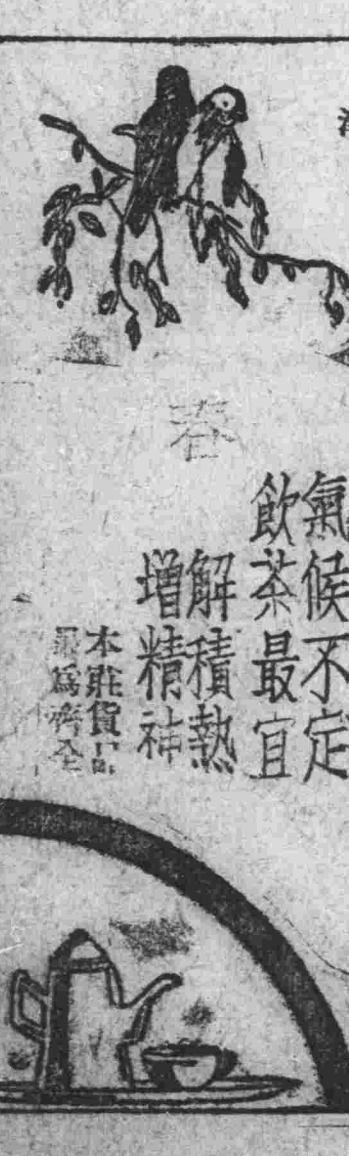 氣候不定
飲茶最宜
解積熱
增精神
本莊貨品
最為齊全